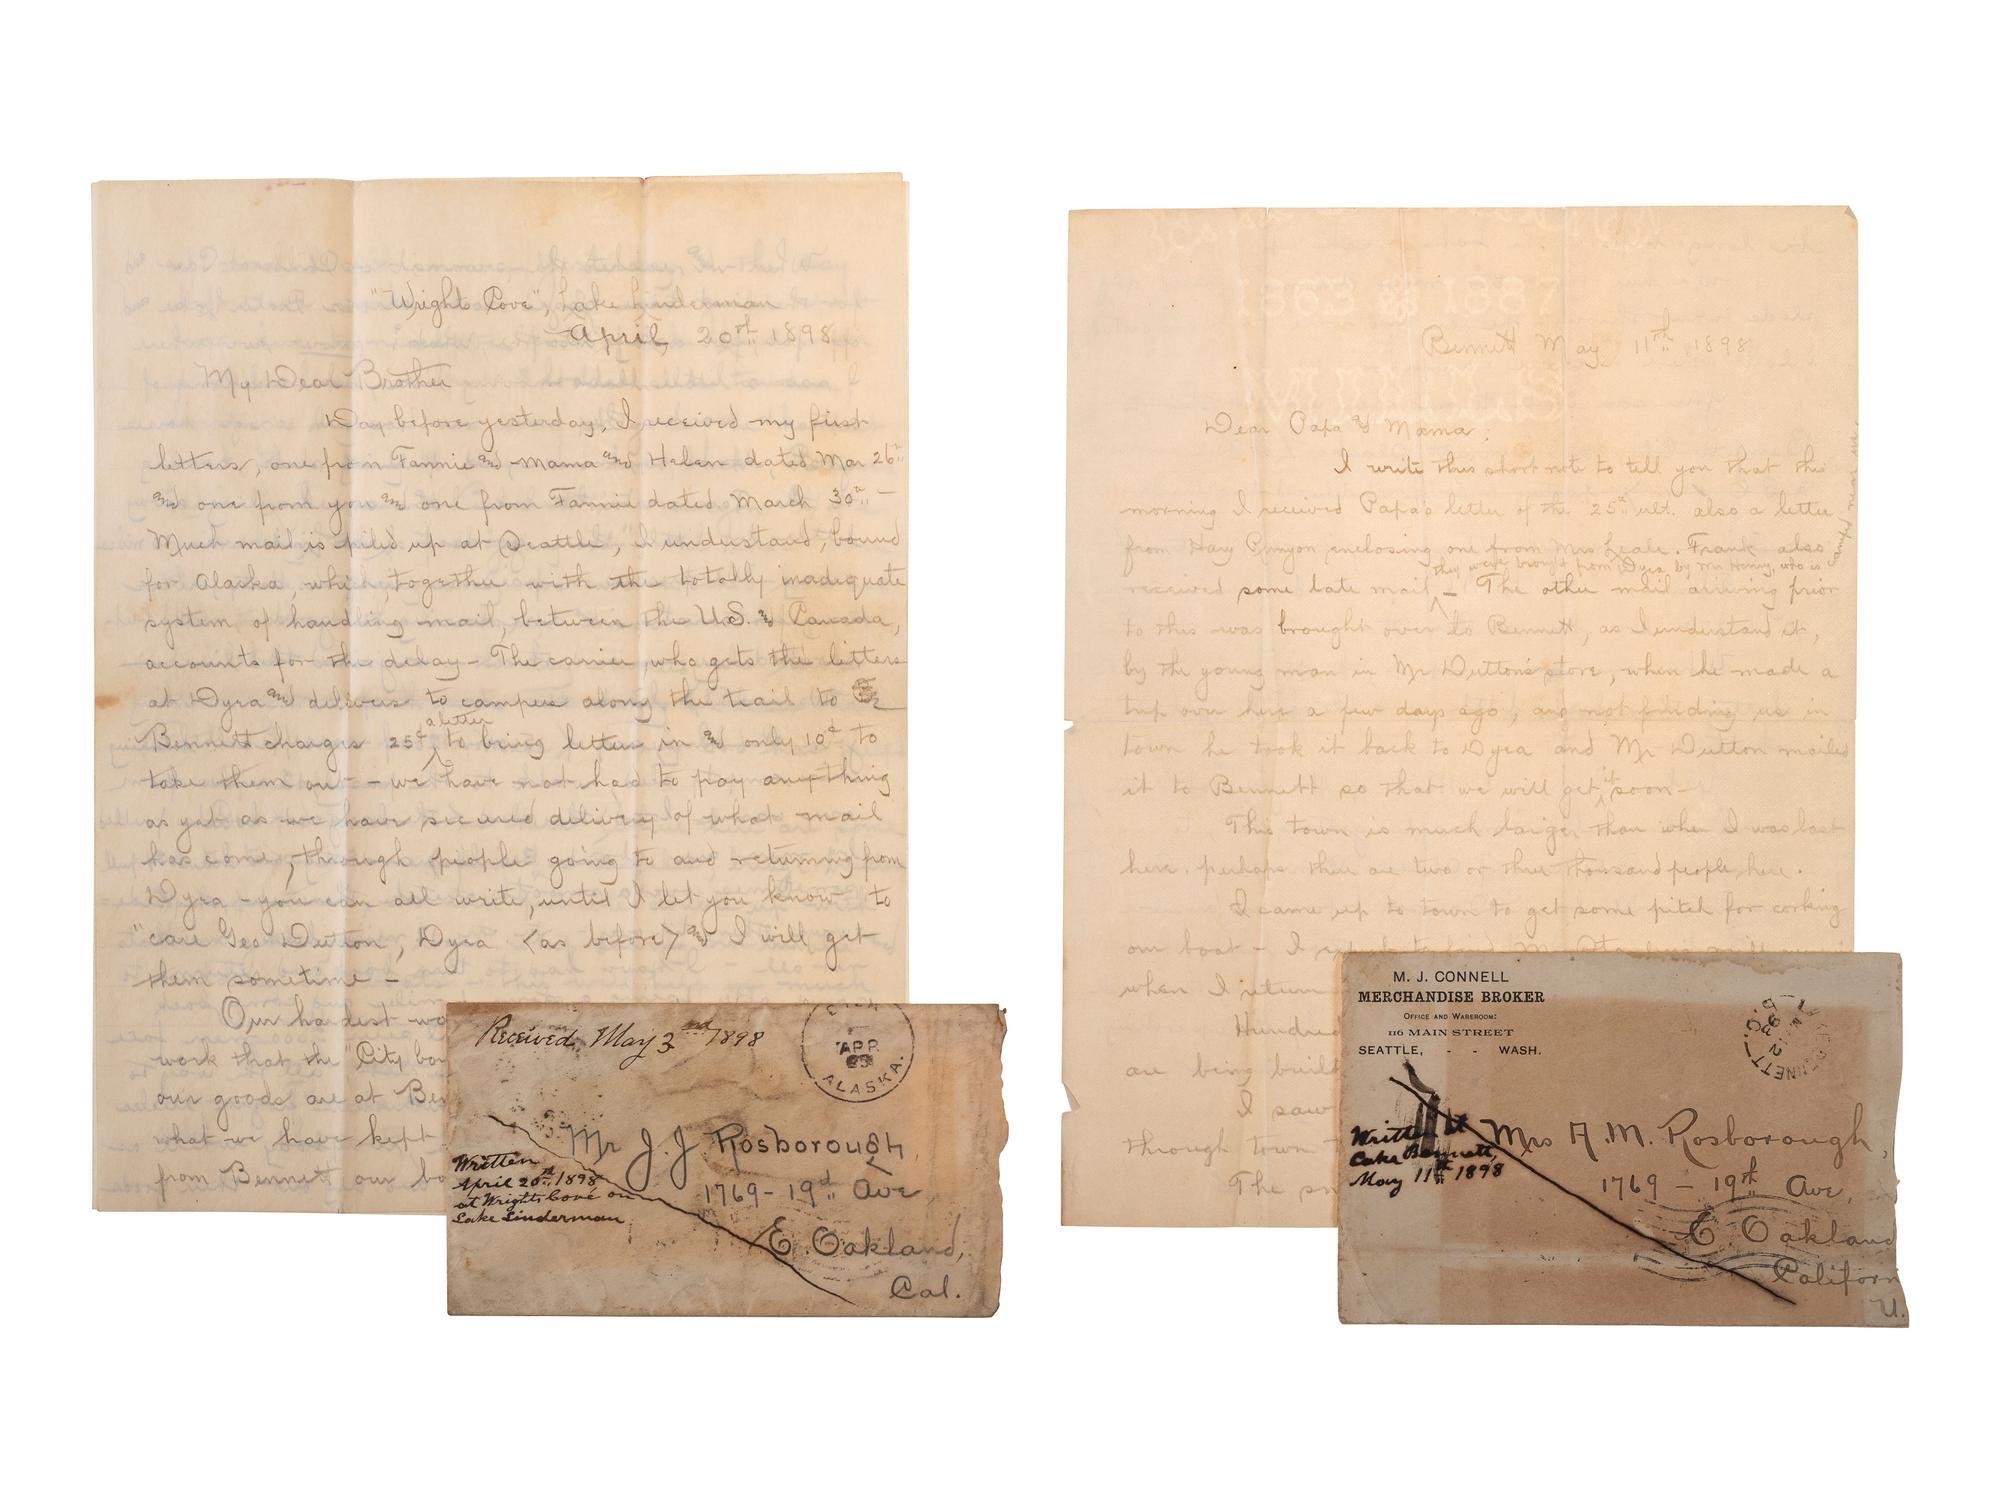 "Wright Cove", Lake Linderman
April, 20th 1898.
My Dear Brother
Day before yesterday, I received my first
letters, one from Fannie and Mama and Helen dated Mar 26th
and one from you and one from Fannie dated March 30th -
Much mail is piled up at Seattle, I understand, bound
for Alaska, which, together with the totally inadequate
system of handling mail, between the U.S. & Canada,
accounts for the delay - The carrier, who gets the letters
at Dyea and delivers to campers along the trail to
Bennett charges 25¢ a letter to bring letters in and only 10¢ to
take them out - we have not had to pay anything
as yet as we have secured delivery of what mail
has come, through people going to and returning from
Dyea - you can all write, until I let you know to
"care Geo Dutton, Dyea (as before) and I will get
them sometime -
Our hardest wo
work that the "City
our goods are at Ben
what we have kept
from Bennett our bo
Received, May 3rd 1898
APR
ALASKA.
Mr J. J. Rosborough,
1769 - 19th Ave
E. Oakland,
Cal.
Written
April 20th, 1898
at Wrights Cove on
Lake Linderman
1862 1887
Bennett May 11th 1898
Dear Papa and Mama;
I write this short note to tell you that this
morning I received Papa's letter of the 25th ult. also a letter
from Harry enclosing one from Mrs Leale. Frank also
they were brought from Dyea by Mr Henry, who is
received some late mail - The other mail arriving prior
to this was brought over to Bennett, as I understand it,
by the young man in Mr Dutton's store, when he made a
trip over here a few days ago, and not finding us in
town he took it back to Dyea and Mr Dutton mailed
it to Bennett so that we will get it soon -
This town is much larger than when I was last
here, perhaps there are two or three thousand people, here.
I came up to town to get some pitch for corking
our boat - I
when I return
Hundred
are being built
I saw
through town
The sn
M. J. CONNELL
MERCHANDISE BROKER
OFFICE AND WAREROOM:
116 MAIN STREET
SEATTLE, - - WASH.
BENNETT
B.C.
Written at
Lake Bennett,
May 11th 1898
Mrs A. M. Rosborough,
1769 - 19th Ave,
E. Oakland
Californ
U.